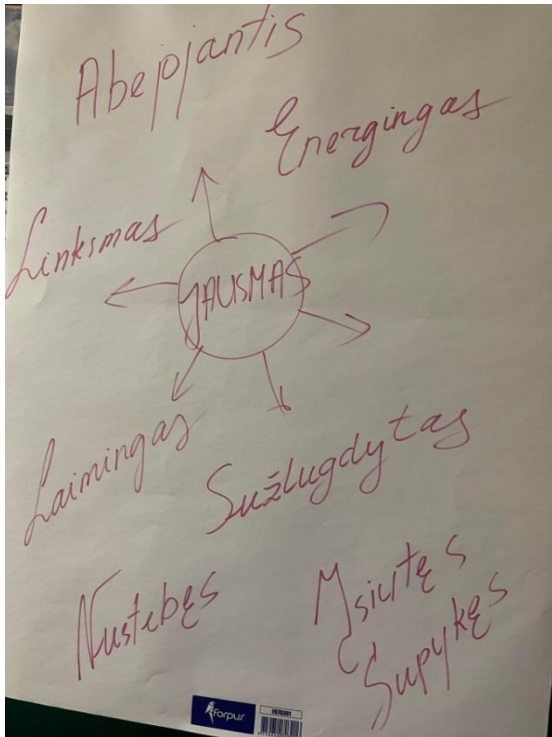 Abejojantis
Energingas
Linksmas
JAUSMAS
Laimingas
Sužlugdytas
Nustebęs
Įsiutęs
Supykęs
forpus